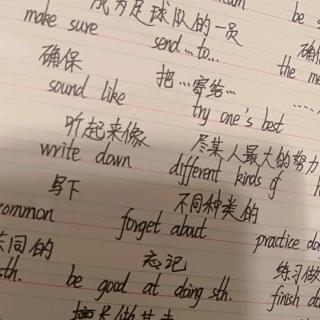 成为足球队的一员
make sure send...to... the m
确保 把...寄给... ......
sound like try one's best
听起来像 尽某人最大的努力
write down different kinds of
写下 不同种类的
common forget about practice do
共同的 忘记 练习做
sth. be good at doing sth. finish do
擅长做某事